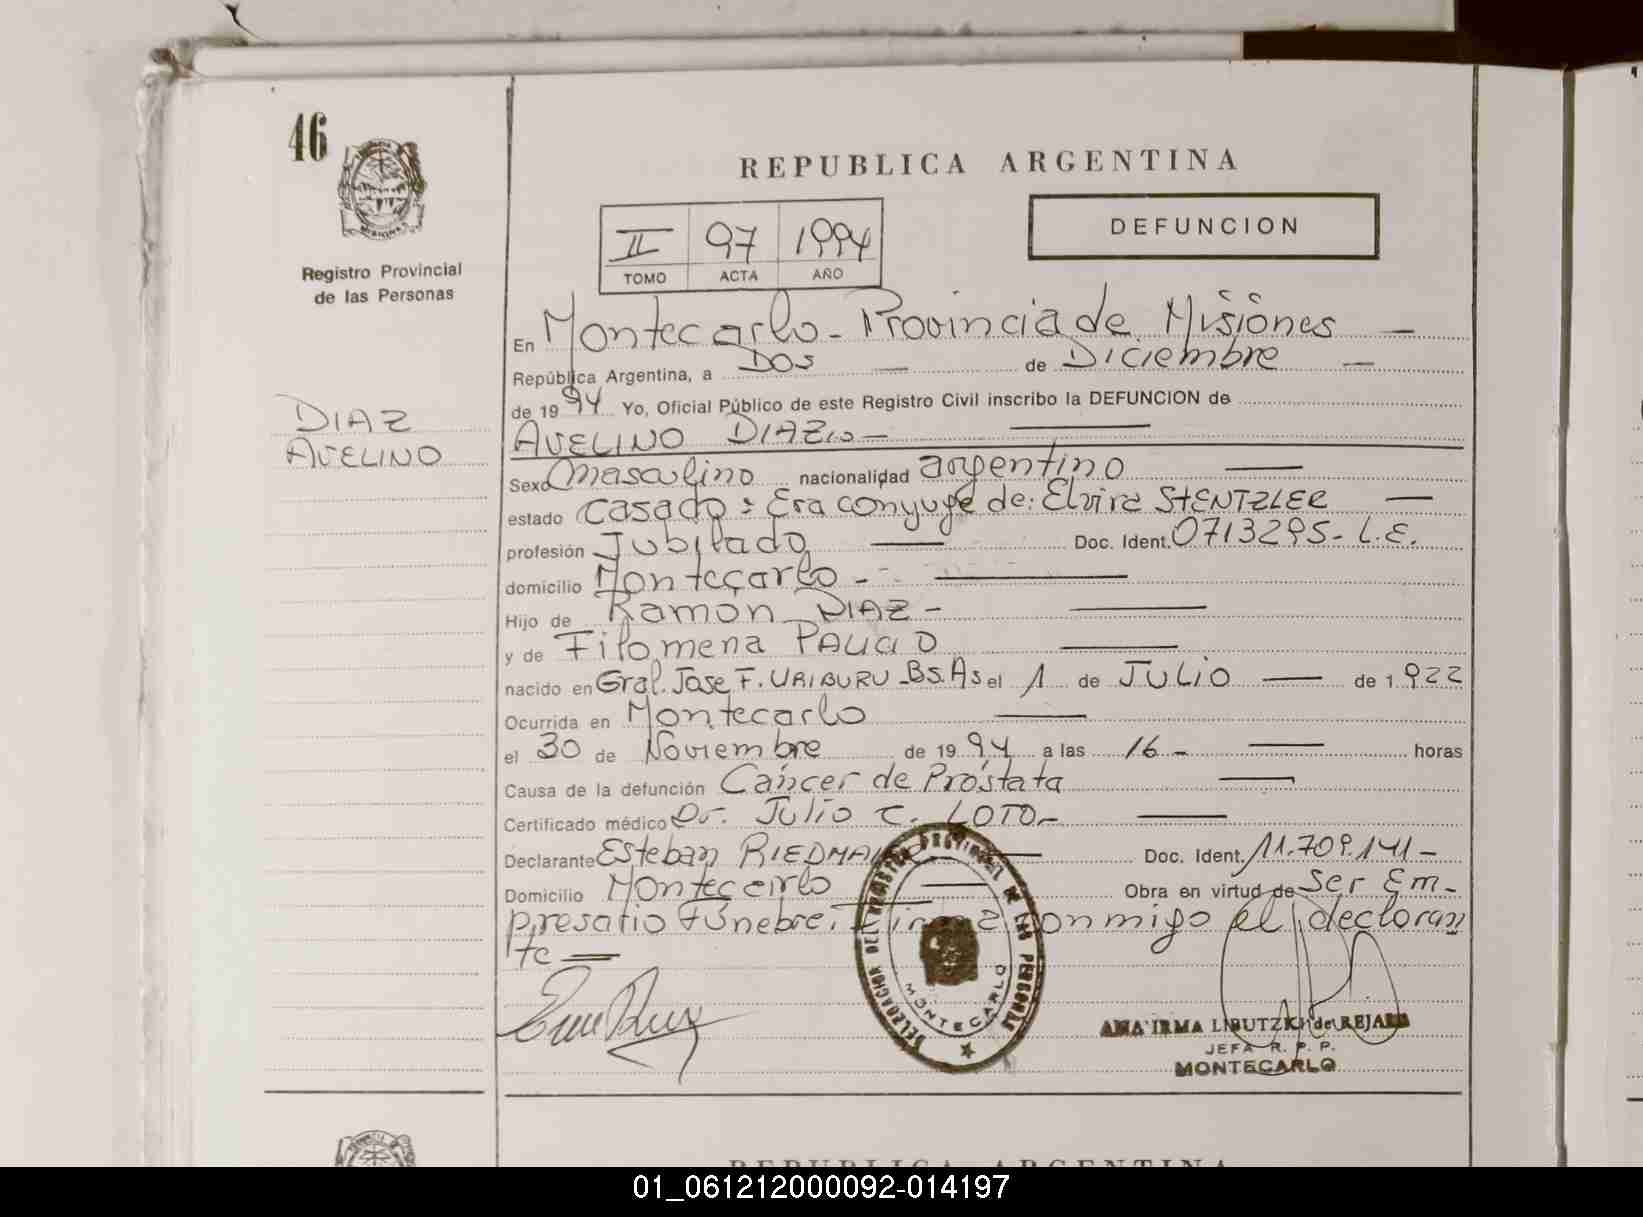 46
REPUBLICA ARGENTINA
MISIONES
Registro Provincial
de las Personas
II 97 1994
TOMO ACTA AÑO
DEFUNCION
DIAZ
AVELINO
En Montecarlo - Provincia de Misiones —
República Argentina, a Dos — de Diciembre —
de 1994 Yo, Oficial Público de este Registro Civil inscribo la DEFUNCION de
AVELINO DIAZ —
Sexo masculino nacionalidad argentino —
estado casado = Era conyuge de: Elvira STENTZLER —
profesión Jubilado — Doc. Ident. 0713295- L.E.
domicilio Montecarlo - —
Hijo de Ramón DIAZ - —
y de Filomena —
nacido en Gral. Jose F. URIBURU - Bs.As el 1 de JULIO — de 1.922
Ocurrida en Montecarlo —
el 30 de Noviembre de 1994 a las 16 - — horas
Causa de la defunción Cáncer de Próstata —
Certificado médico Dr. Julio C. LOTO - —
Declarante Esteban — Doc. Ident. 11.709.141 -
Domicilio Montecarlo — Obra en virtud de Ser Em-
presario fúnebre. Firma conmigo el declaran
te —
DELEGACION DEL REGISTRO PROVINCIAL DE LAS PERSONAS
MONTECARLO
ANA IRMA de REJALA
JEFA R. P. P.
MONTECARLO
REPUBLICA ARGENTINA
01_061212000092-014197